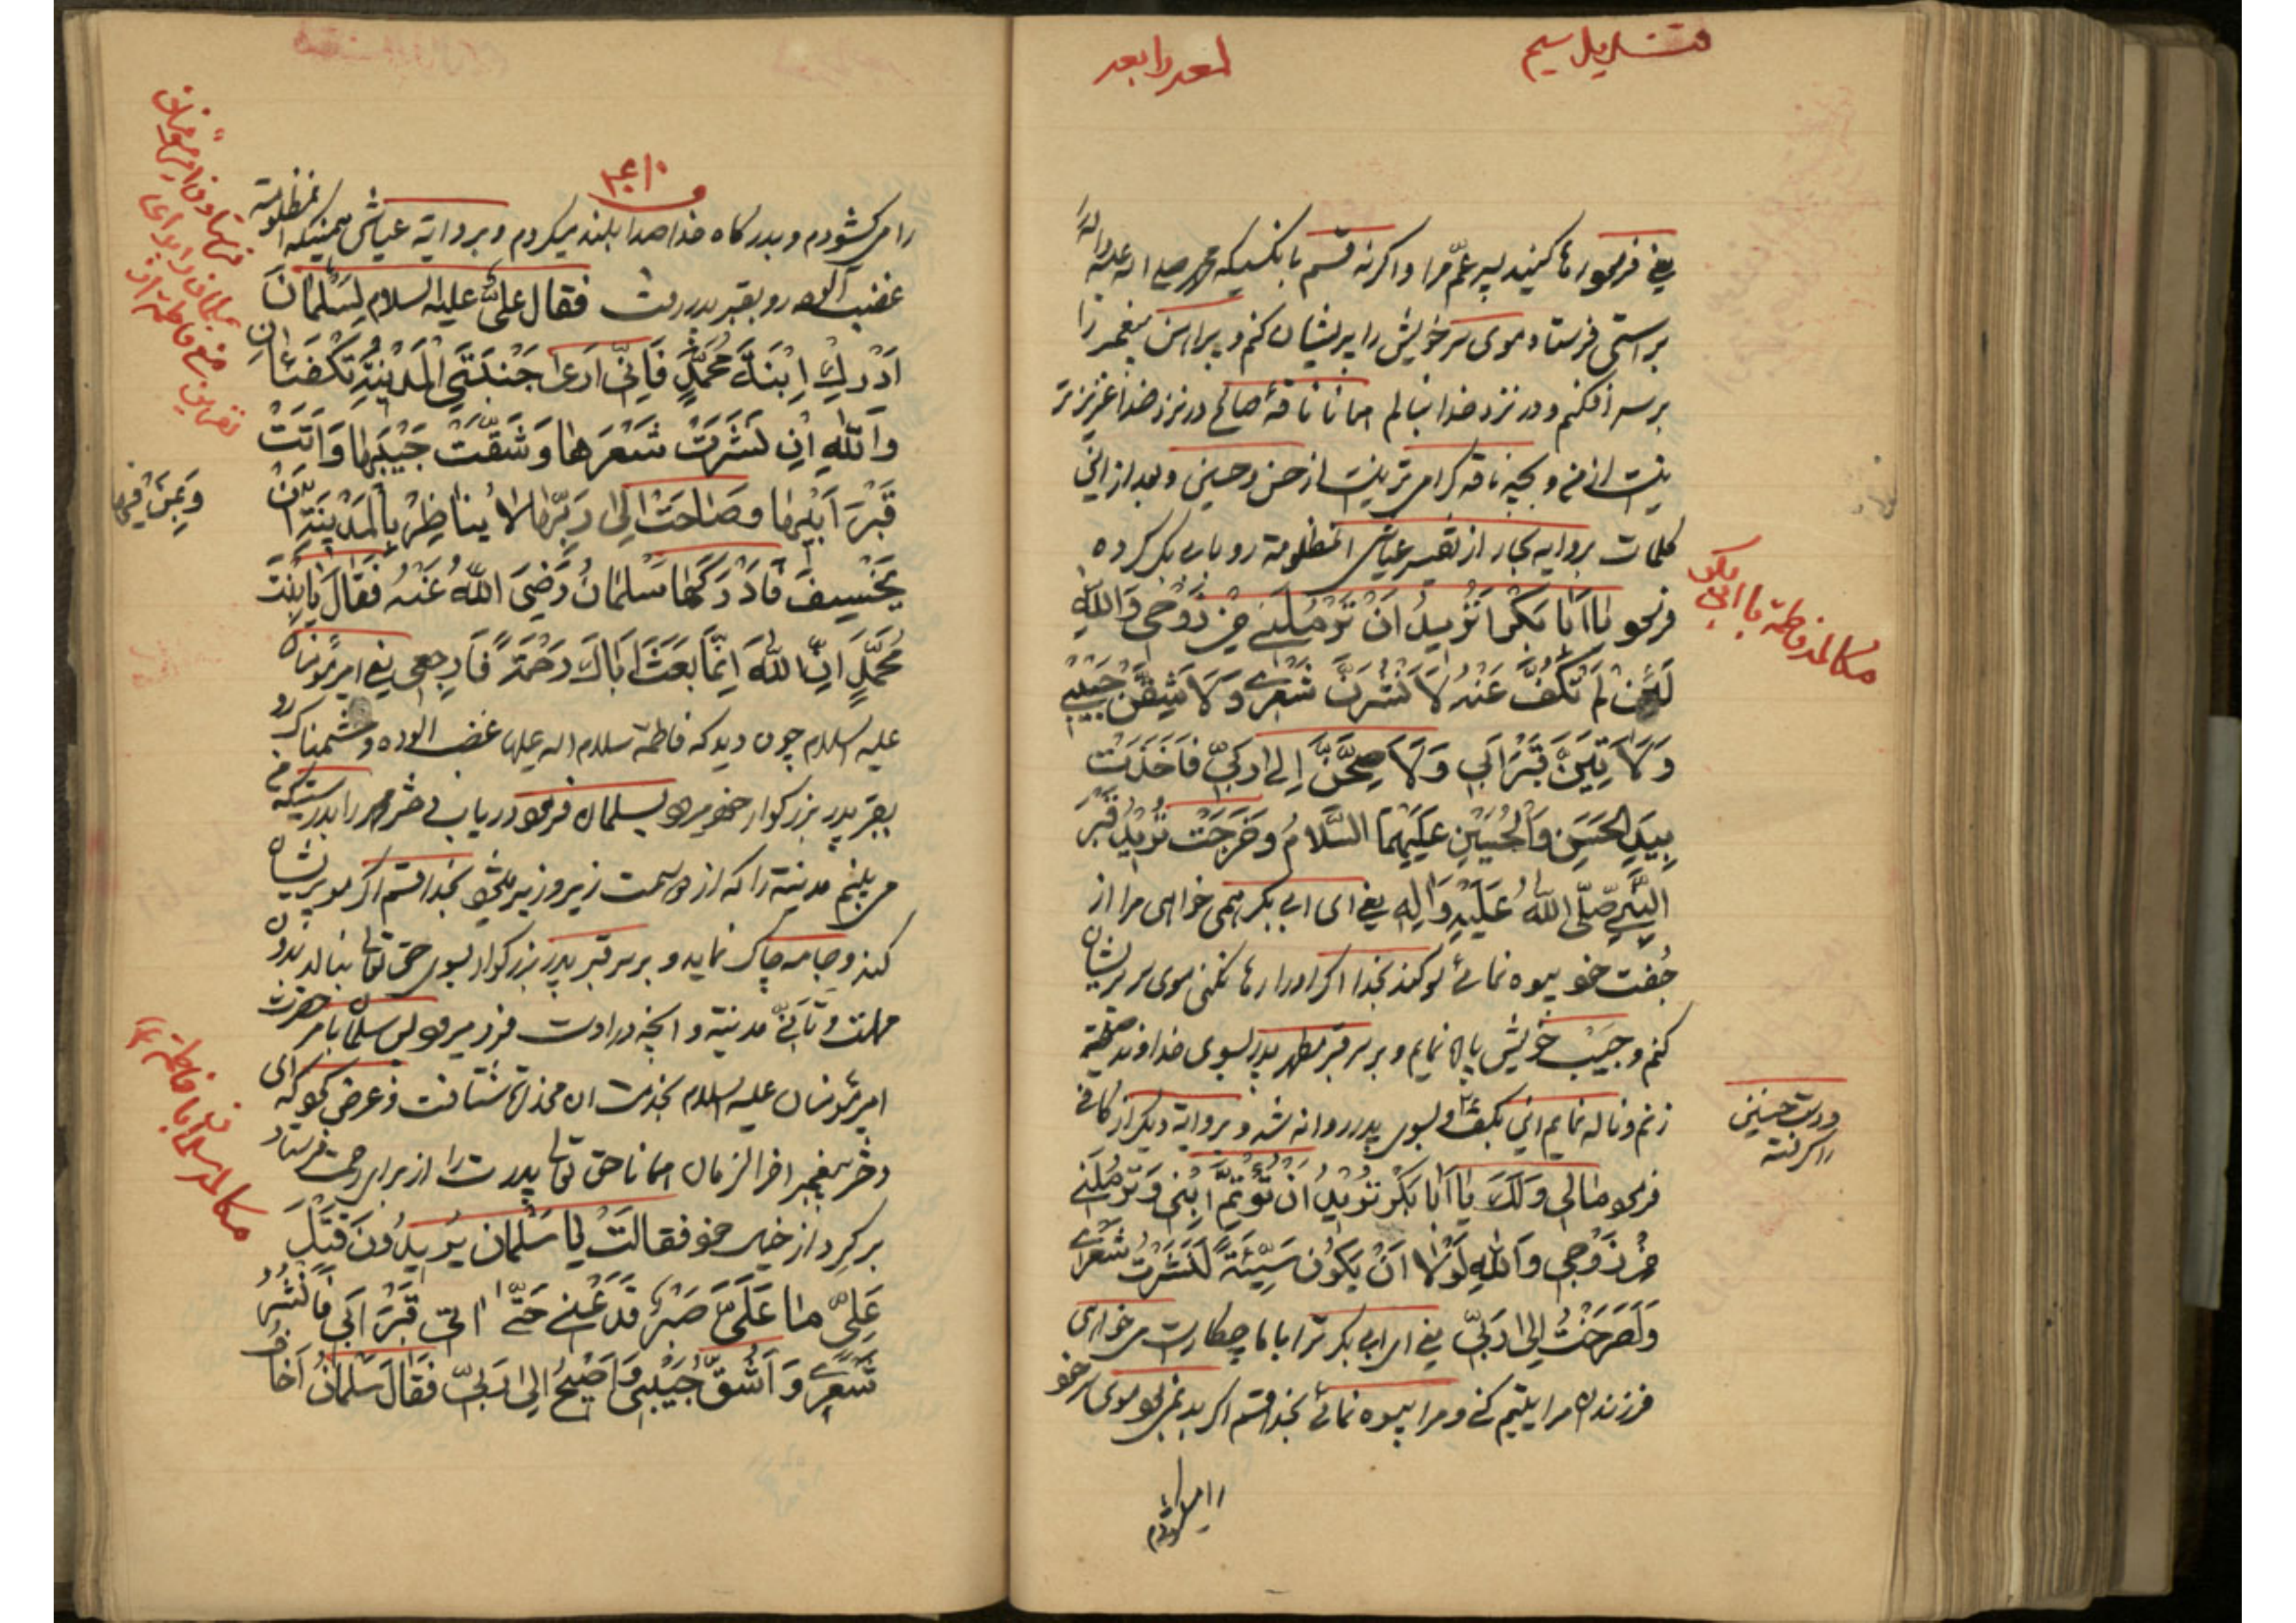 یعنی فرمود رها کنید پسر عمّ مرا و اگر نه قسم بآنکسیکه محمد صلی الله علیه واله را
براستی فرستاد موی سر خویش را پریشان کنم و پیراهن پیغمبر را
بر سر افکنم و در نزد خدا بنالم همانا ناقهٔ صالح در نزد خدا عزیزتر
نیست از من و بچه ناقه گرامی تر نیست از حسن و حسین و بعد از این
کلمات بروایه بحار از تفسیر عیاشی انمظلومة رو بابی بکر کرده
فرمود یا اَبا بَکْر اَتُریدُ اَنْ تُرْمِلَنی مِنْ زَوْجی وَاللهِ
لَئِنْ لَمْ تَکُفَّ عَنْهُ لَاَنْشُرَنَّ شَعْری وَلَاَشُقَّنَّ جَیْبی
وَلَاٰتِیَنَّ قَبْرَ اَبی وَلَاَصِیحَنَّ اِلیٰ رَبّی فَاَخَذَتْ
بِیَدِ الحَسَنِ وَالْحُسَیْنِ عَلَیْهِمَا السَّلامُ وَخَرَجَتْ تُریدُ قَبْرَ
النَّبِیِّ صَلَّی اللهُ عَلَیْهِ وَآلِهِ یعنی ای ابی بکر همی خواهی مرا از
جُفت خود بیوه نمائی سوکند بخدا اکر او را رها نکنی موی سر پریشان
کنم و جَیْب خویش پاره نمایم و بر سر قبر مطهر پدر بسوی خداوند صیحة
زنم و ناله نمایم این بگفت و بسوی پدر روانه شد و بروایة دیکر از کافی
ودست حسنین
را گرفته
فرمود مالی وَلَکَ یا اَبا بَکْر تُریدُ اَنْ تُؤْتِمَ ابْنَیَّ وَتُرْمِلَنی
مِنْ زَوْجی وَاللهِ لَوْلا اَنْ یَکُونَ سَیِّئَةً لَنَشَرْتُ شَعْری
وَلَصَرَخْتُ اِلیٰ رَبّی یعنی ای ابی بکر ترا با ما چکار است می خواهی
فرزندان مرا یتیم کنی و مرا بیوه نمائی بخدا قسم اکر بد نمی بود موی سر خود
مکالمه فاطمة با ابی بکر
را می کشودم و بدرکاه خدا صدا بلند میکردم و بروایة عیاشی همینکه انمظلومة
غضب آلوده رو بقبر پدر رفت فقال علیٌّ علیه السلام لِسَلْمانَ
اَدْرِكْ اِبْنَةَ مُحَمَّدٍ فَاِنّی اَریٰ جَنْبَتَیِ الْمَدینَةِ تَکْفَئانِ
وَاللهِ اِنْ نَشَرَتْ شَعْرَها وَشَقَّتْ جَیْبَها وَاَتَتْ
قَبْرَ اَبیها وصاحَتْ اِلیٰ رَبِّها لا یُناظِرُ بِالْمَدینَةِ اَنْ
یُخْسِفَ فَاَدْرَکَها سَلْمانُ رَضِیَ اللهُ عَنْهُ فَقالَ یا بِنْتَ
وَبِمَنْ فیها
مُحَمَّدٍ اِنَّ اللهَ اِنَّما بَعَثَ اَباكَ رَحْمَةً فَارْجِعی یعنی امیر مؤمنان
علیه السلام چون دید که فاطمة سلام الله علیها غضب الوده و خشمناک رو
بقبر پدر بزرکوار خود میرود بسلمان فرمود دریاب دختر محمد را بدرستیکه
می بینم مدینة را که از دو سمت زیر و زبر میشود بخدا قسم اکر مو پریشان
کند و جامه چاک نماید و بر سر قبر پدر بزرکوار بسوی حق تعالی بنالد بدون
مهلت و تأنّی مدینة و انچه در اوست فرو میرود پس سلمان بامر حضرت
امیر مؤمنان علیه السلام بخدمت ان مخدرة شتافت و عرض نمود که ای
دختر پیغمبر اخر الزمان همانا حق تعالی پدرت را از برای رحمت فرستاد
برکرد از خیال خود فقالَتْ یا سَلْمان یُریدُونَ قَتْلَ
عَلِیٍّ ما عَلَیَّ صَبْرٌ فَدَعْنی حَتّیٰ اٰتِیَ قَبْرَ اَبی فَاَنْشُرَ
شَعْری وَ اَشُقَّ جَیْبی وَاَصیحَ اِلیٰ رَبّی فَقالَ سَلْمانُ اَخافُ
مکالمه سلمان با فاطمة